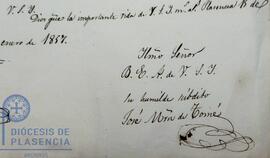 V. S. Y.
Dios gûe la importante vida de V. S. Y. m.s a.s Plasencia 18 de
enero de 1857.
Yltmo Señor
B. E. A. de V. S. Y.
Su humilde súbdito
José Mría de Tomé
DIÓCESIS DE
PLASENCIA